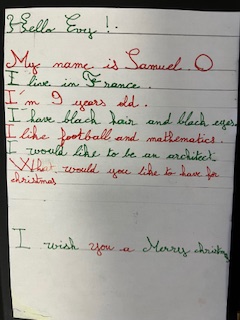 Hello Evy !
My name is Samuel. O
I live in France.
I'm 9 years old.
I have black hair and black eyes.
I like football and mathematics.
I would like to be an architect
What would you like to have for
christmas
I wish you a Merry christmas